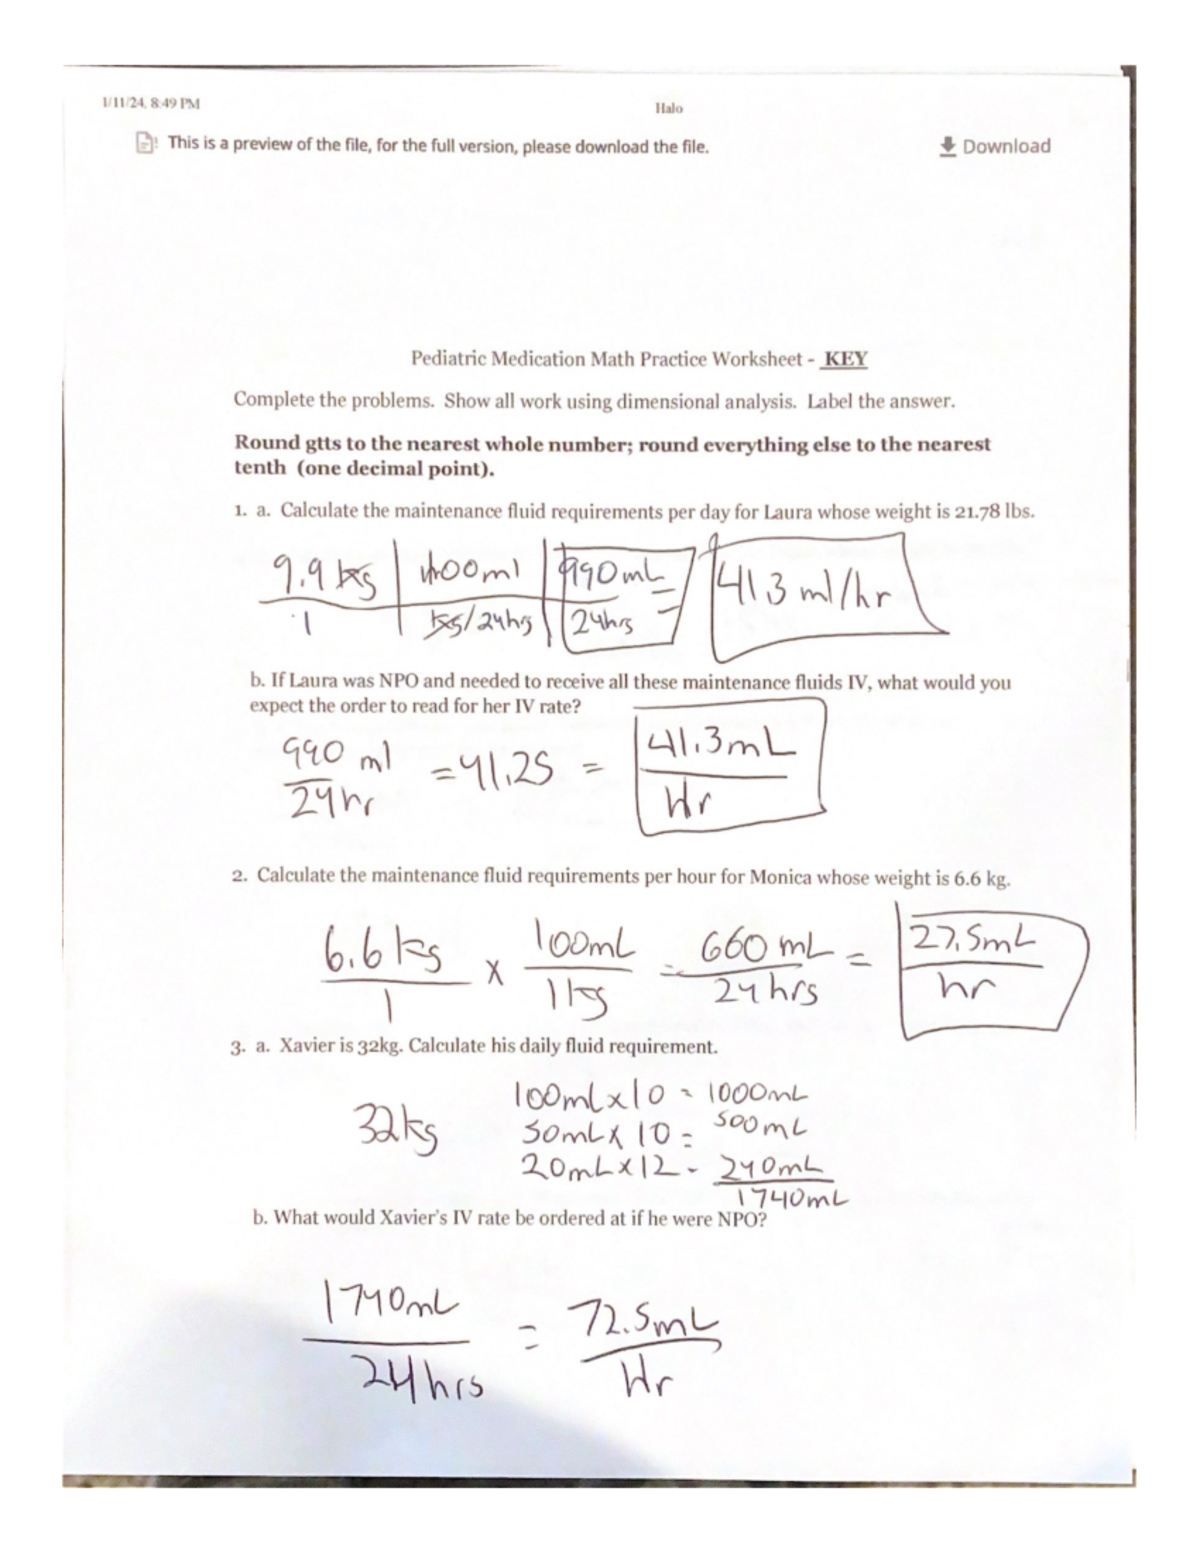 1/11/24, 8:49 PM
Halo
This is a preview of the file, for the full version, please download the file.
Download
Pediatric Medication Math Practice Worksheet - KEY
Complete the problems. Show all work using dimensional analysis. Label the answer.
Round gtts to the nearest whole number; round everything else to the nearest
tenth (one decimal point).
1. a. Calculate the maintenance fluid requirements per day for Laura whose weight is 21.78 lbs.
9.9 kg | 100 ml | 990 mL = 41.3 ml/hr
1 | kg/24hrs | 24hrs
b. If Laura was NPO and needed to receive all these maintenance fluids IV, what would you
expect the order to read for her IV rate?
990 ml = 41.25 = 41.3 mL
24 hr Hr
2. Calculate the maintenance fluid requirements per hour for Monica whose weight is 6.6 kg.
6.6 kg x 100mL = 660 mL = 27.5mL
1 1kg 24 hrs hr
3. a. Xavier is 32kg. Calculate his daily fluid requirement.
100mL x 10 = 1000mL
32kg 50mL x 10 = 500mL
20mL x 12 = 240mL
1740mL
b. What would Xavier's IV rate be ordered at if he were NPO?
1740mL = 72.5mL
24 hrs Hr